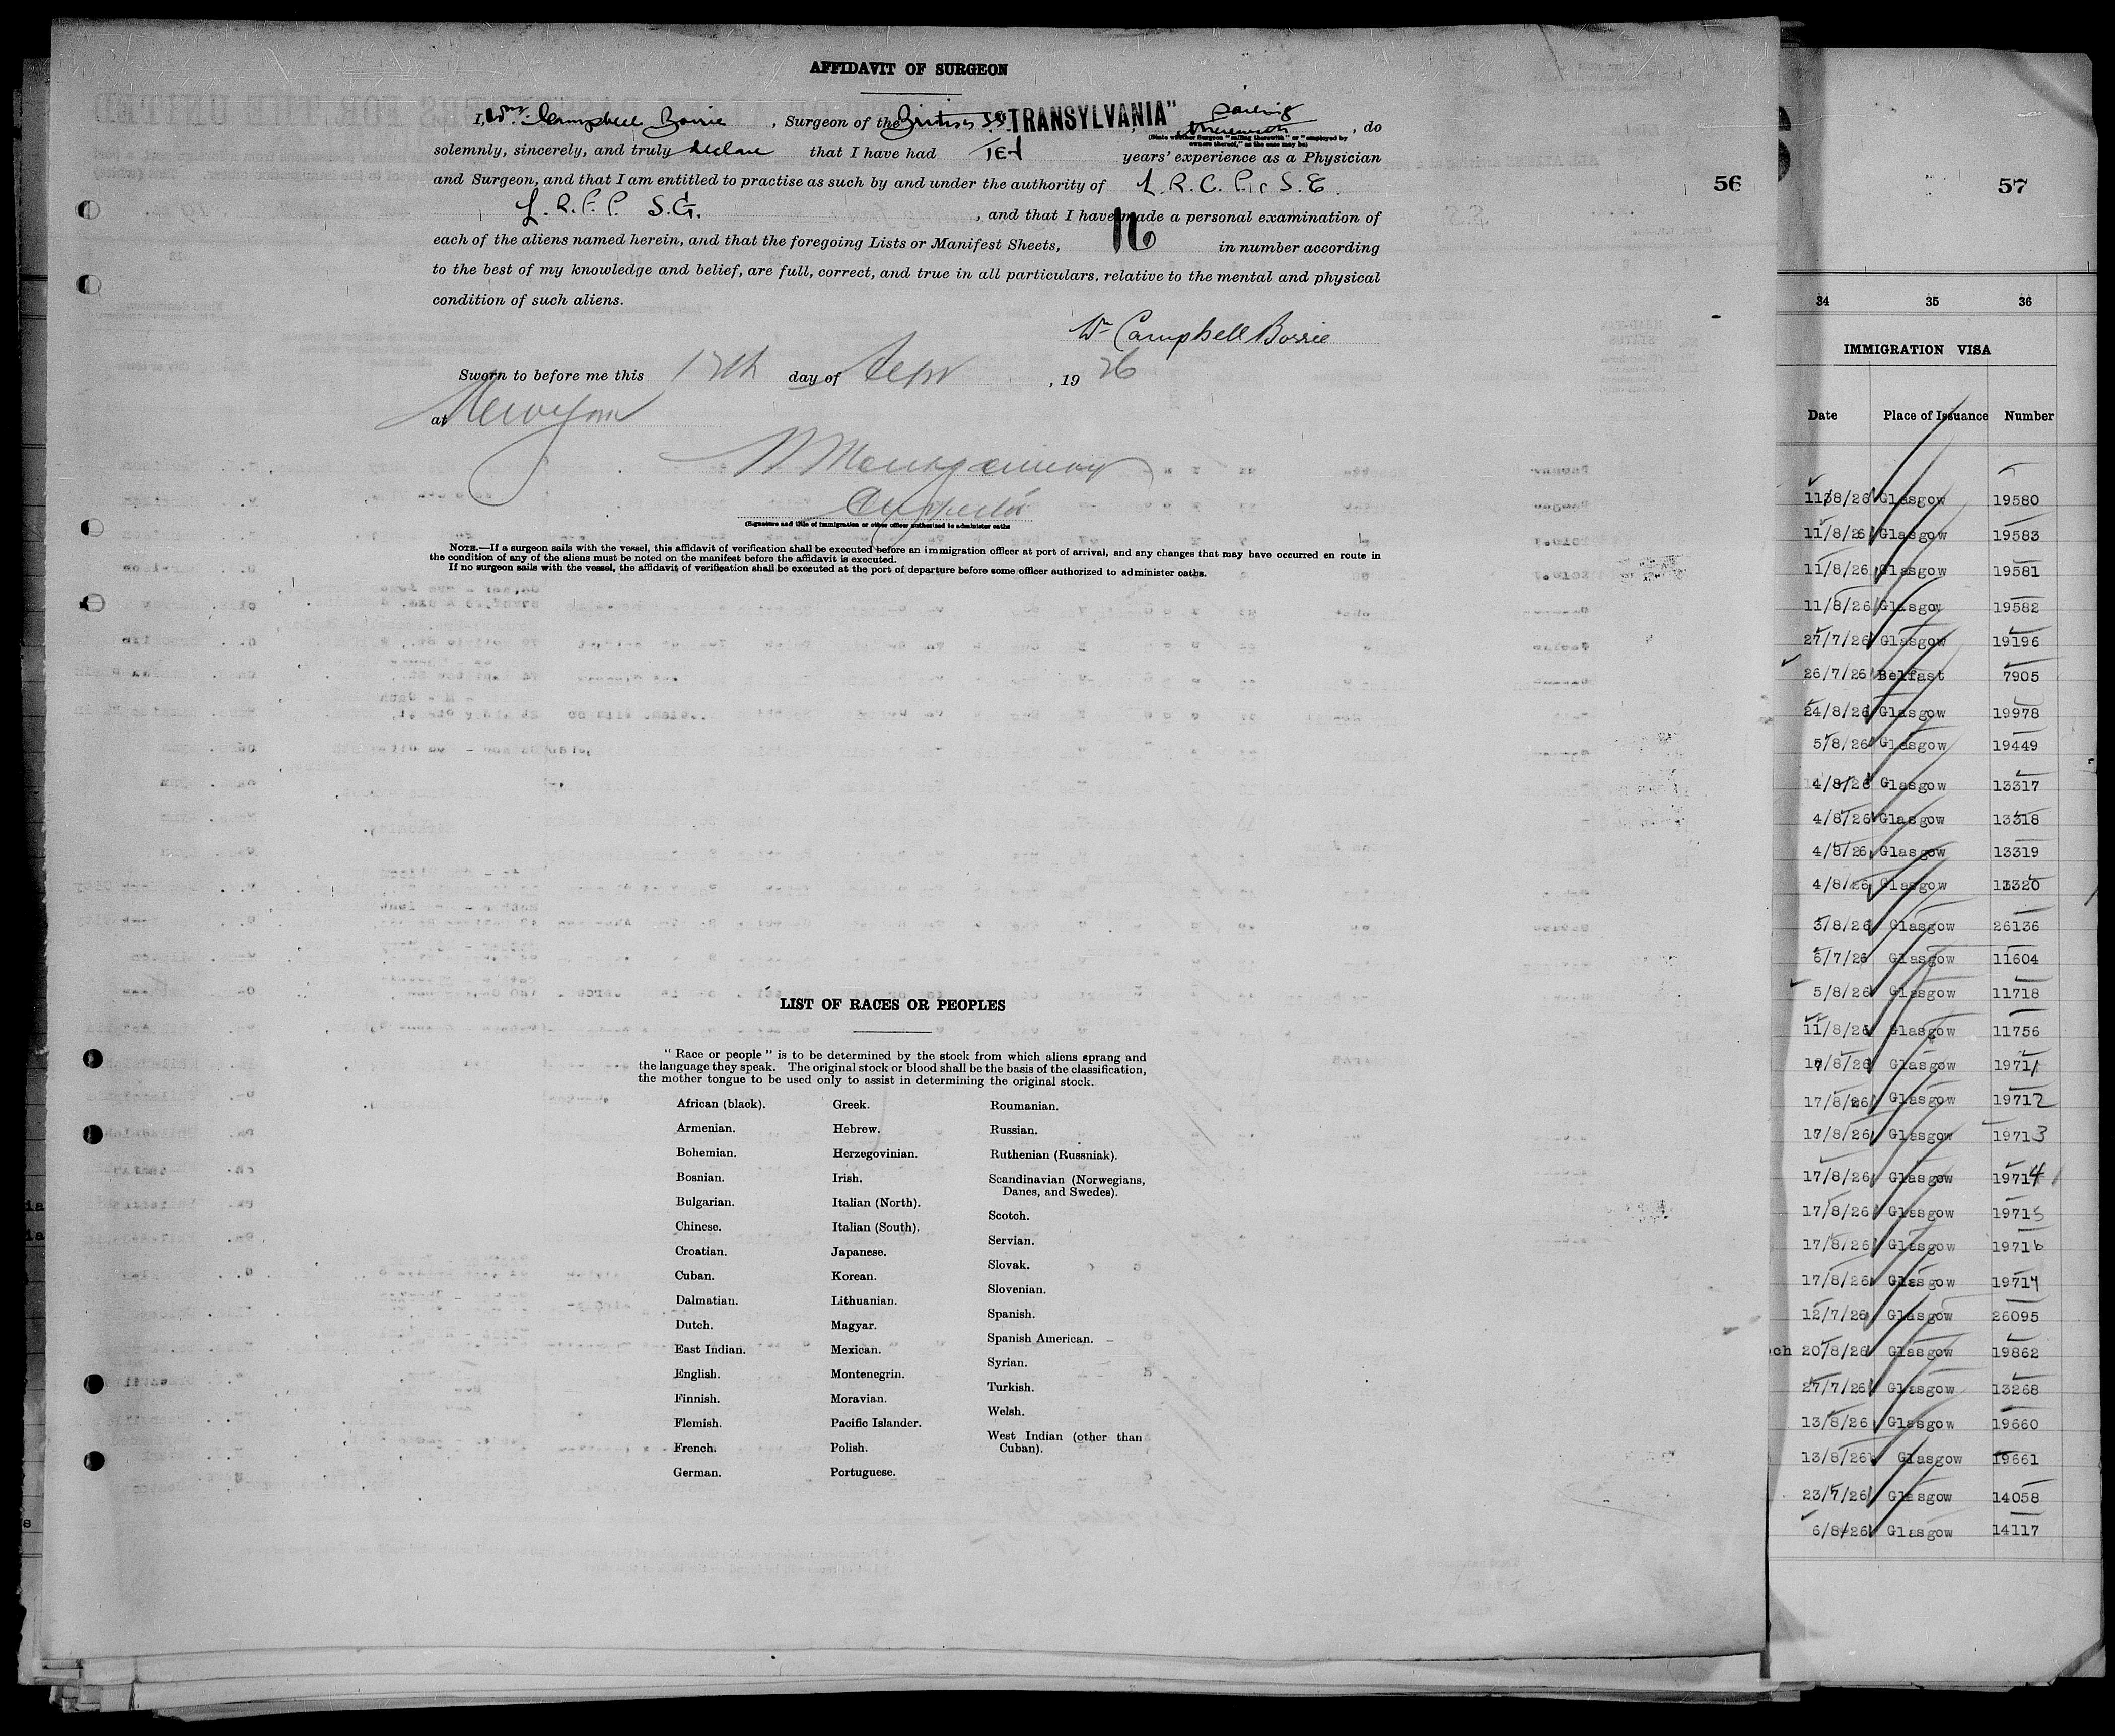 AFFIDAVIT OF SURGEON
I, Wm. Campbell Borrie, Surgeon of the British SS. "TRANSYLVANIA", sailing therewith, do
(State whether Surgeon "sailing therewith" or "employed by owners thereof," as the case may be)
solemnly, sincerely, and truly declare that I have had TEN years' experience as a Physician
and Surgeon, and that I am entitled to practise as such by and under the authority of L.R.C.P. & S.E.
L.R.F.P. S.G., and that I have made a personal examination of
each of the aliens named herein, and that the foregoing Lists or Manifest Sheets, 16 in number according
to the best of my knowledge and belief, are full, correct, and true in all particulars, relative to the mental and physical
condition of such aliens.
Wm Campbell Borrie
Sworn to before me this 12th day of Sept, 1926
at New York
Montgomery
Inspector
(Signature and title of immigration or other officer authorized to administer oaths
NOTE.—If a surgeon sails with the vessel, this affidavit of verification shall be executed before an immigration officer at port of arrival, and any changes that may have occurred en route in
the condition of any of the aliens must be noted on the manifest before the affidavit is executed.
If no surgeon sails with the vessel, the affidavit of verification shall be executed at the port of departure before some officer authorized to administer oaths.
56
LIST OF RACES OR PEOPLES
"Race or people" is to be determined by the stock from which aliens sprang and
the language they speak. The original stock or blood shall be the basis of the classification,
the mother tongue to be used only to assist in determining the original stock.
African (black).
Armenian.
Bohemian.
Bosnian.
Bulgarian.
Chinese.
Croatian.
Cuban.
Dalmatian.
Dutch.
East Indian.
English.
Finnish.
Flemish.
French.
German.
Greek.
Hebrew.
Herzegovinian.
Irish.
Italian (North).
Italian (South).
Japanese.
Korean.
Lithuanian.
Magyar.
Mexican.
Montenegrin.
Moravian.
Pacific Islander.
Polish.
Portuguese.
Roumanian.
Russian.
Ruthenian (Russniak).
Scandinavian (Norwegians,
Danes, and Swedes).
Scotch.
Servian.
Slovak.
Slovenian.
Spanish.
Spanish American.
Syrian.
Turkish.
Welsh.
West Indian (other than
Cuban).
57
34 35 36
IMMIGRATION VISA
Date Place of Issuance Number
11/8/26 Glasgow 19580
11/8/26 Glasgow 19583
11/8/26 Glasgow 19581
11/8/26 Glasgow 19582
27/7/26 Glasgow 19196
26/7/26 Belfast 7905
24/8/26 Glasgow 19978
5/8/26 Glasgow 19449
4/8/26 Glasgow 13317
4/8/26 Glasgow 13318
4/8/26 Glasgow 13319
4/8/26 Glasgow 13320
3/8/26 Glasgow 26136
6/7/26 Glasgow 11604
5/8/26 Glasgow 11718
11/8/26 Glasgow 11756
17/8/26 Glasgow 19711
17/8/26 Glasgow 19712
17/8/26 Glasgow 19713
17/8/26 Glasgow 19714
17/8/26 Glasgow 19715
17/8/26 Glasgow 19716
17/8/26 Glasgow 19714
12/7/26 Glasgow 26095
20/8/26 Glasgow 19862
27/7/26 Glasgow 13268
13/8/26 Glasgow 19660
13/8/26 Glasgow 19661
23/7/26 Glasgow 14058
6/8/26 Glasgow 14117